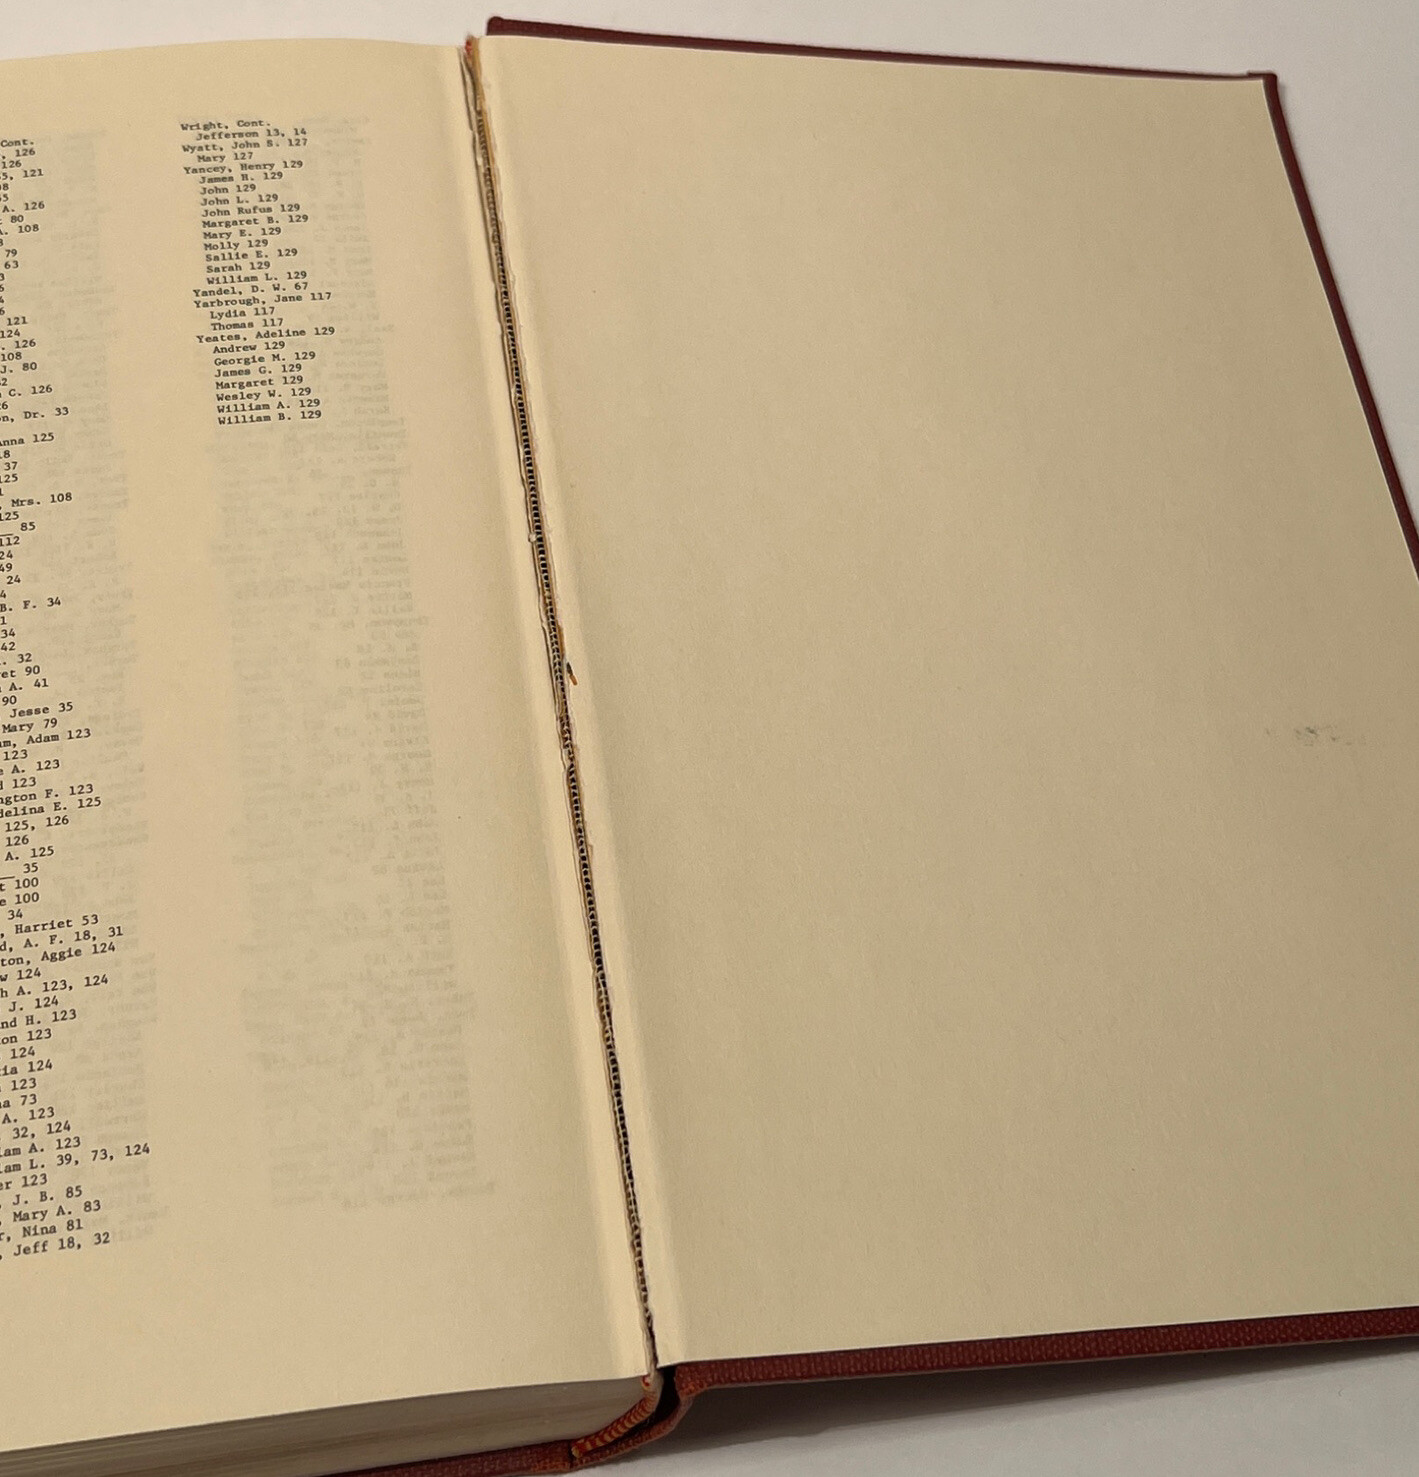 Cont.
, 126
126
5, 121
08
A. 126
80
A. 108
79
63
121
124
. 126
108
J. 80
C. 126
n, Dr. 33
Anna 125
37
125
, Mrs. 108
125
85
112
24
49
24
B. F. 34
34
42
. 32
et 90
A. 41
90
Jesse 35
Mary 79
m, Adam 123
123
e A. 123
d 123
ngton F. 123
delina E. 125
125, 126
126
A. 125
35
t 100
e 100
34
, Harriet 53
d, A. F. 18, 31
ton, Aggie 124
w 124
h A. 123, 124
J. 124
nd H. 123
on 123
124
ia 124
123
na 73
A. 123
32, 124
iam A. 123
iam L. 39, 73, 124
er 123
, J. B. 85
, Mary A. 83
r, Nina 81
, Jeff 18, 32
Wright, Cont.
Jefferson 13, 14
Wyatt, John S. 127
Mary 127
Yancey, Henry 129
James H. 129
John 129
John L. 129
John Rufus 129
Margaret B. 129
Mary E. 129
Molly 129
Sallie E. 129
Sarah 129
William L. 129
Yandel, D. W. 67
Yarbrough, Jane 117
Lydia 117
Thomas 117
Yeates, Adeline 129
Andrew 129
Georgie M. 129
James G. 129
Margaret 129
Wesley W. 129
William A. 129
William B. 129